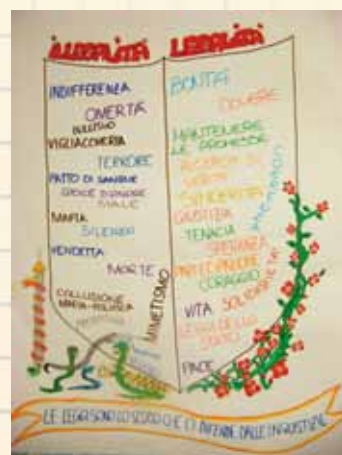 ILLEGALITÀ
INDIFFERENZA
OMERTÀ
BULLISMO
VIGLIACCHERIA
TERRORE
PATTO DI SANGUE
MAFIA
SILENZIO
VENDETTA
MORTE
MIMETISMO
COLLUSIONE
MAFIA-POLITICA
LEGALITÀ
BONTÀ
DOVERE
MANTENERE
LE PROMESSE
RICERCA DI
VERITÀ
SINCERITÀ
GIUSTIZIA
TENACIA
SPERANZA
PARTECIPAZIONE
CORAGGIO
VITA
SOLIDARIETÀ
LEGGI DELLO
STATO
PACE
LE LEGGI SONO LO SCUDO CHE CI DIFENDE DALLE INGIUSTIZIE